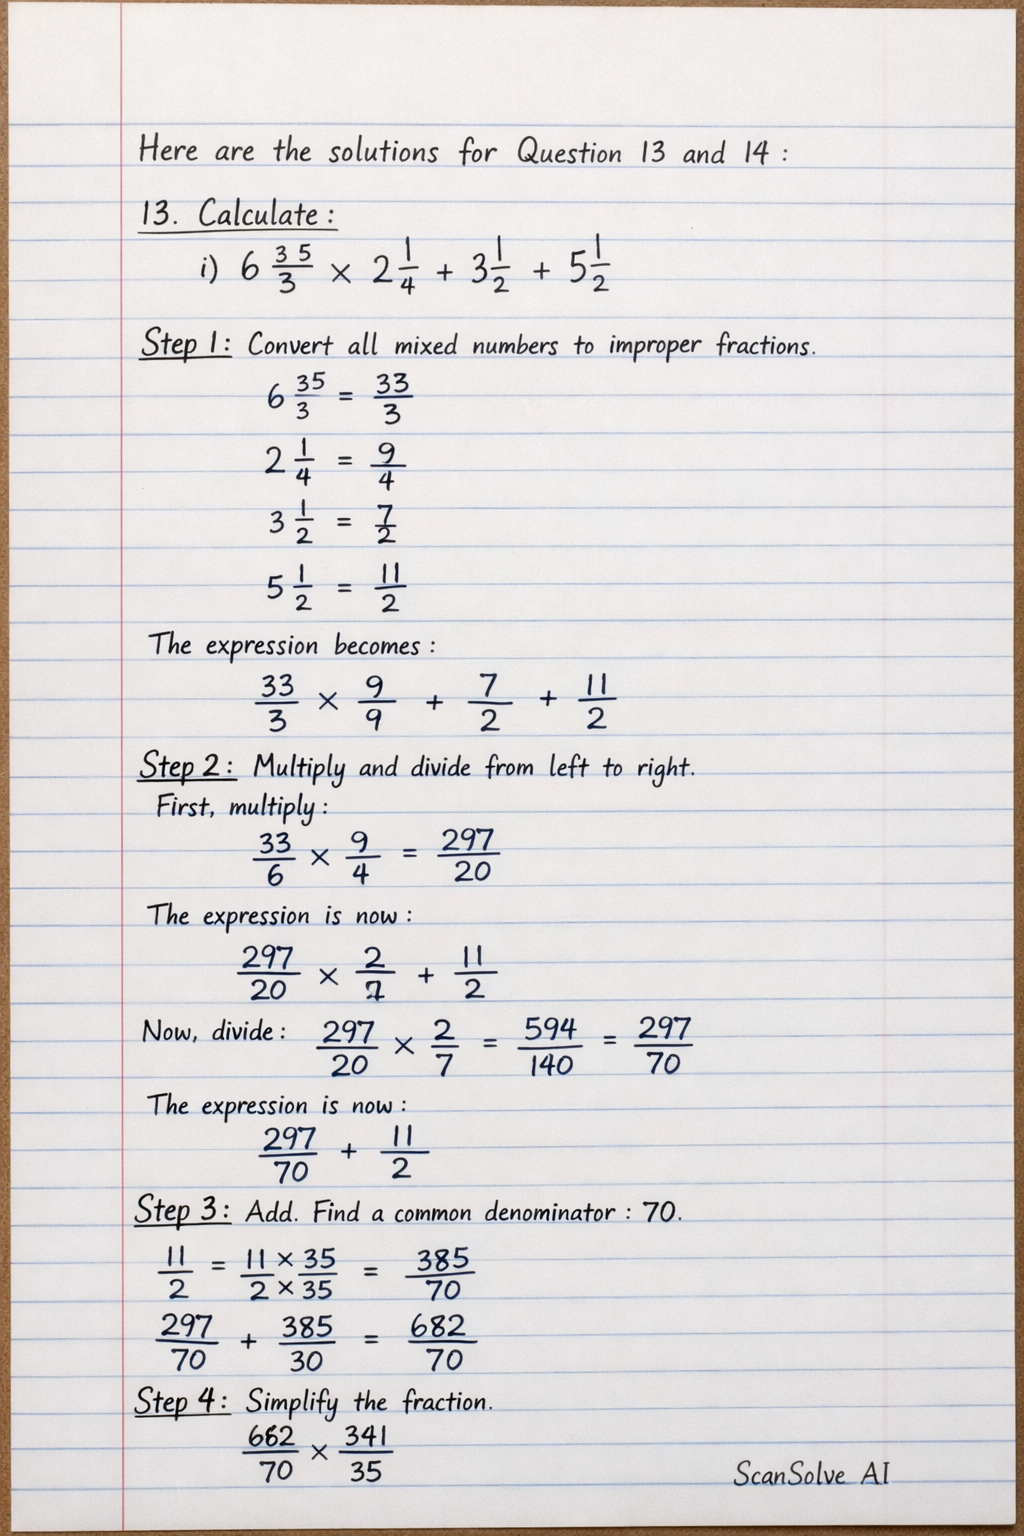 Here are the solutions for Question 13 and 14 :
13. Calculate :
i) 6 35/3 × 2 1/4 + 3 1/2 + 5 1/2
Step 1: Convert all mixed numbers to improper fractions.
6 35/3 = 33/3
2 1/4 = 9/4
3 1/2 = 7/2
5 1/2 = 11/2
The expression becomes :
33/3 × 9/9 + 7/2 + 11/2
Step 2: Multiply and divide from left to right.
First, multiply :
33/6 × 9/4 = 297/20
The expression is now :
297/20 × 2/7 + 11/2
Now, divide : 297/20 × 2/7 = 594/140 = 297/70
The expression is now :
297/70 + 11/2
Step 3: Add. Find a common denominator : 70.
11/2 = 11 × 35/2 × 35 = 385/70
297/70 + 385/30 = 682/70
Step 4: Simplify the fraction.
682/70 × 341/35
ScanSolve AI